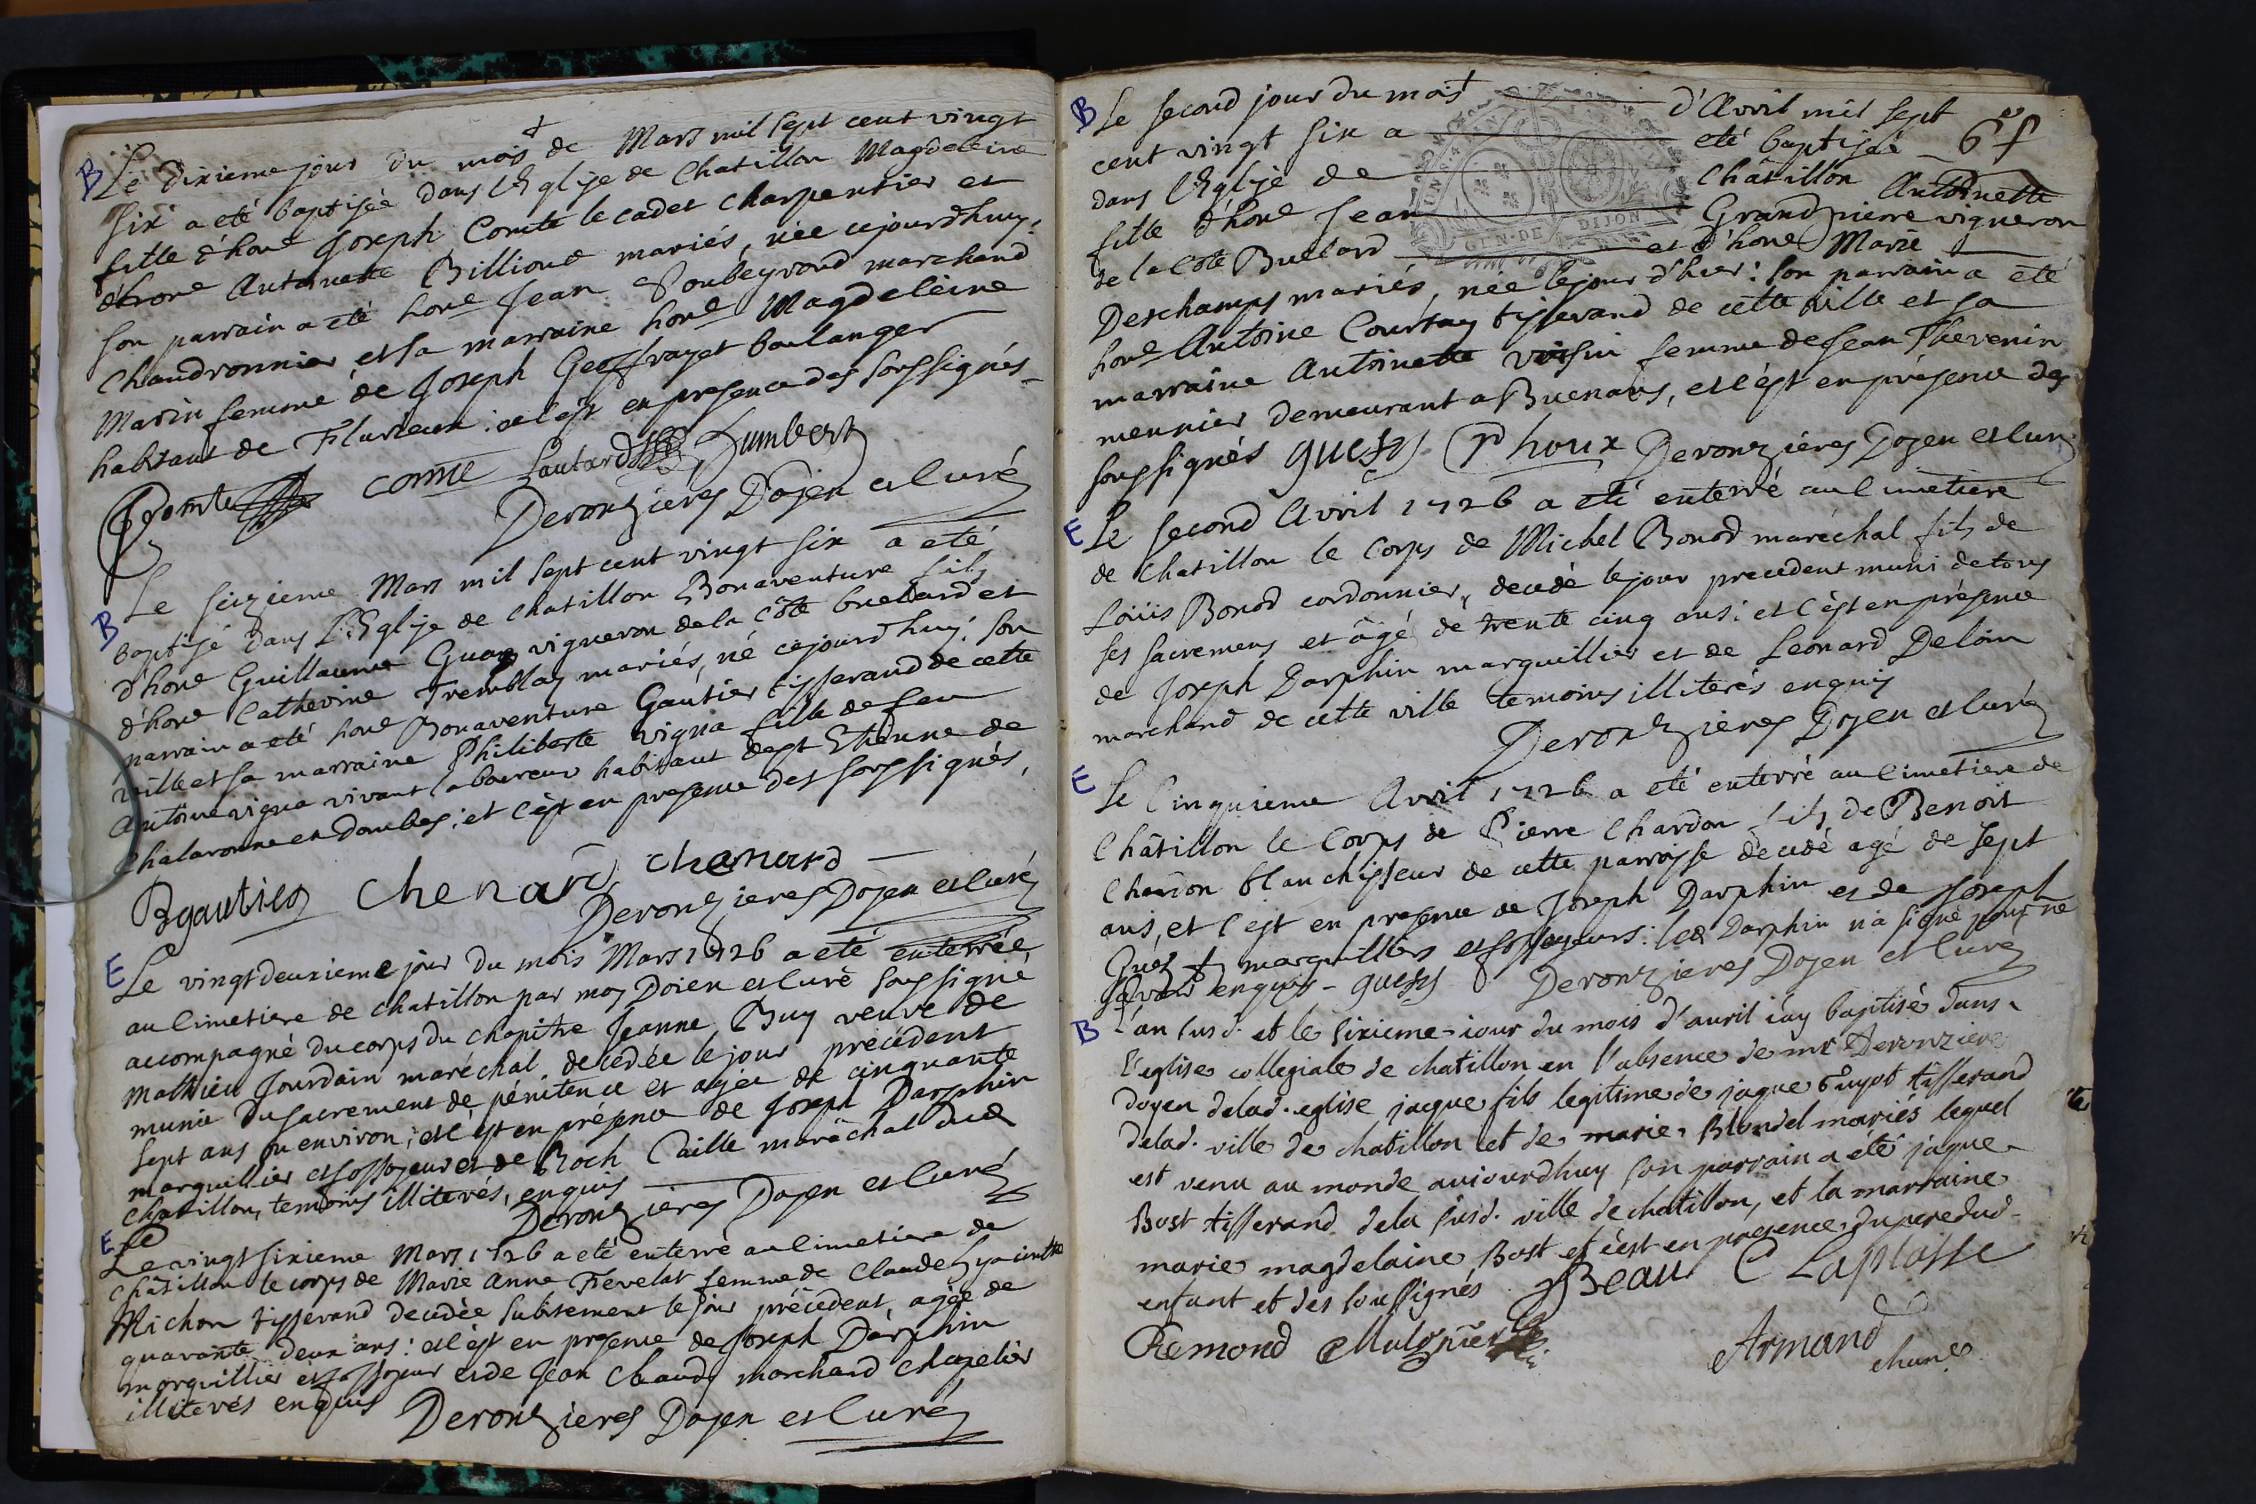 B Le dixieme jour du mois de Mars mil sept cent vingt
six a eté baptisée dans l'Eglise de Chatillon Magdeleine
fille d'hon.e Joseph Comte le cadet charpentier et
d'hon.e Antoinette Billioud mariés, née cejourdhuy:
son parrain a eté hon.e Jean Soubeyrand marchand
Chaudronnier et sa marraine hon.e Magdeleine
Marin femme de Joseph Geoffrayet boulanger
habitant de Flurieux: et c'est en presence des soussignés
Comte Comte Lautard Humbert
Deronzieres Doyen et Curé
B Le seizieme Mars mil sept cent vingt six a eté
baptisé dans l'Eglise de Chatillon Bonaventure fils
d'hon.e Guillaume Guay vigneron de la Côte buellard et
d'hon.e Catherine Tremblay mariés, né cejourdhuy: son
parrain a eté hon.e Bonaventure Gautier tisserand de cette
ville et sa marraine Philiberte vigna fille de feu
Antoine vigna vivant laboureur habitant de st Etienne de
Chalaronne en dombes: et c'est en presence des soussignés,
Bgautier Chenard chenard
Deronzieres Doyen et Curé
E Le vingtdeuxieme jour du mois Mars 1726 a eté enterrée
au Cimetiere de chatillon par moy Doien et Curé soussigné
accompagné du corps du chapitre Jeanne Buy veuve de
Mathieu Jourdain maréchal decédée le jour précédent
munie du sacrement de pénitence et agée de cinquante
sept ans ou environ; et c'est en présence de Joseph Darphin
marguillier et fossoyeur et de Roch Caille maréchal dud
Chatillon, temoins illiterés, enquis
Deronzieres Doyen et Curé
E Le vingt sixieme Mars 1726 a eté enterré au Cimetiere de
Chatillon le corps de Marie Anne Fevelat femme de Claude hyacinthe
Michon tisserand decedée subitement le jour précedent, agée de
quarante deux ans: et c'est en presence de Joseph Darphin
marguillier et fossoyeur et de Jean Chaudy marchand chapelier
illiterés enquis Deronzieres Doyen et Curé
B Le second jour du mois d'Avril mil sept
cent vingt six a eté baptisée 6 f
dans l'Eglise de Châtillon Antoinette
fille d'hon.e Jean Grandpierre vigneron
de la Côte Buelard et d'hon.e Marie
GEN. DE DIJON
Deschamps mariés, née le jour d'hier: son parrain a eté
hon.e Antoine Courtay tisserand de cette ville et sa
marraine Antoinette voisin femme de Jean Thevenin
meunier demeurant a Buenans, et c'est en présence des
soussignés guess Phoux Deronzières Doyen et Curé
E Le second Avril 1726 a eté enterré au Cimetiere
de Chatillon le Corps de Michel Bonod maréchal fils de
Loüis Bonod cordonnier, decedé le jour precedent muni de tous
ses sacremens et âgé de trente cinq ans: et c'est en présence
de Joseph Darphin marguillier et de Leonard Delain
marchand de cette ville temoins illiterés enquis
Deronzieres Doyen et Curé
E Le Cinquieme Avril 1726 a eté enterré au Cimetiere de
Châtillon le Corps de Pierre Chardon fils de Benoit
Chardon blanchisseur de cette parroisse decedé agé de sept
ans, et c'est en presence de Joseph Darphin et de Joseph
Gués marguilliers et fossoyeurs: led Darphin n'a signé pour ne
savoir enquis - guess Deronzieres Doyen et Curé
B L'an susd. et le sixieme iour du mois d'auril i'ay baptisé dans
l'eglise collegiale de chatillon en l'absence de mr Deronzieres
doyen delad. eglise jacque fils legitime de jaque Guyot tisserand
delad. ville de chatillon et de marie Blondel mariés lequel
est venu au monde auiourdhuy son parrain a été jaque
Bost tisserand dela susd. ville de chatillon, et la marraine
marie magdelaine Bost et c'est en presence du pere dud
enfant et des soussignés Beau C Laplasse
Remond Armand
chane